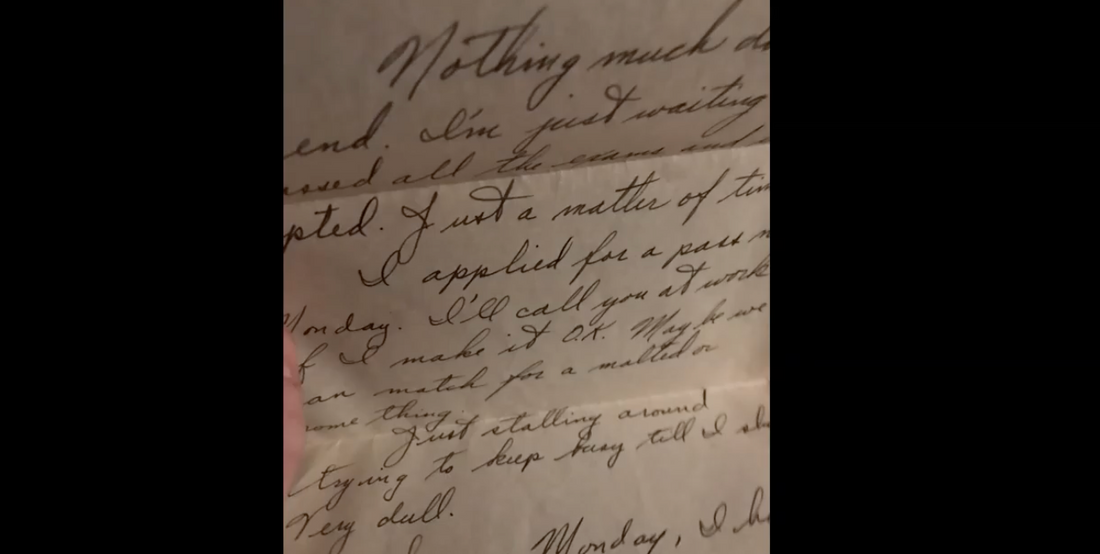 Nothing much d
end. I'm just waiting
assed all the exams and
pted. Just a matter of tim
I applied for a pass n
Monday. I'll call you at work
f I make it O.K. Maybe we
an match for a malted or
some thing.
Just stalling around
trying to keep busy till I sh
Very dull.
Monday, I h